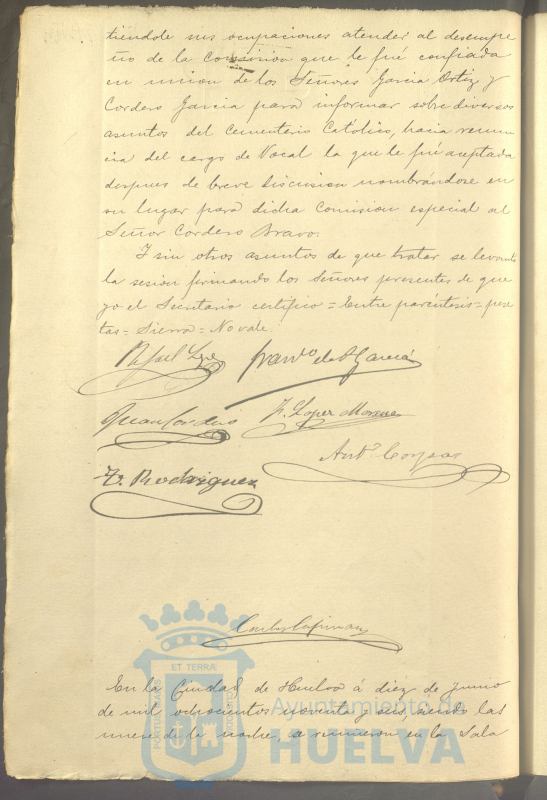 tiéndole sus ocupaciones atender al desempe
ño de la Comision que le fué confiada
en union de los Señores Garcia Ortiz y
Cordero Garcia para informar sobre diversos
asuntos del Cementerio Católico, hacia renun
cia del cargo de Vocal la que le fué aceptada
despues de breve discusion nombrándose en
su lugar para dicha Comision especial al
Señor Cordero Bravo.
I sin otros asuntos de que tratar se levantó
la sesion firmando los Señores presentes de que
yo el Secretario certifico = Entre paréntesis = pese
tas = Sierra = No vale.
Rafael de Garcia
Juan Cordero F. Lopez Moreno
Antº
F. Rodriguez
Carlos
ET TERRÆ
PORTUS MARIS
CUSTODIA
En la Ciudad de Huelva á diez de Junio
de mil ochocientos noventa y seis, siendo las
nueve de la noche, se reunieron en la Sala
Ayuntamiento de
HUELVA